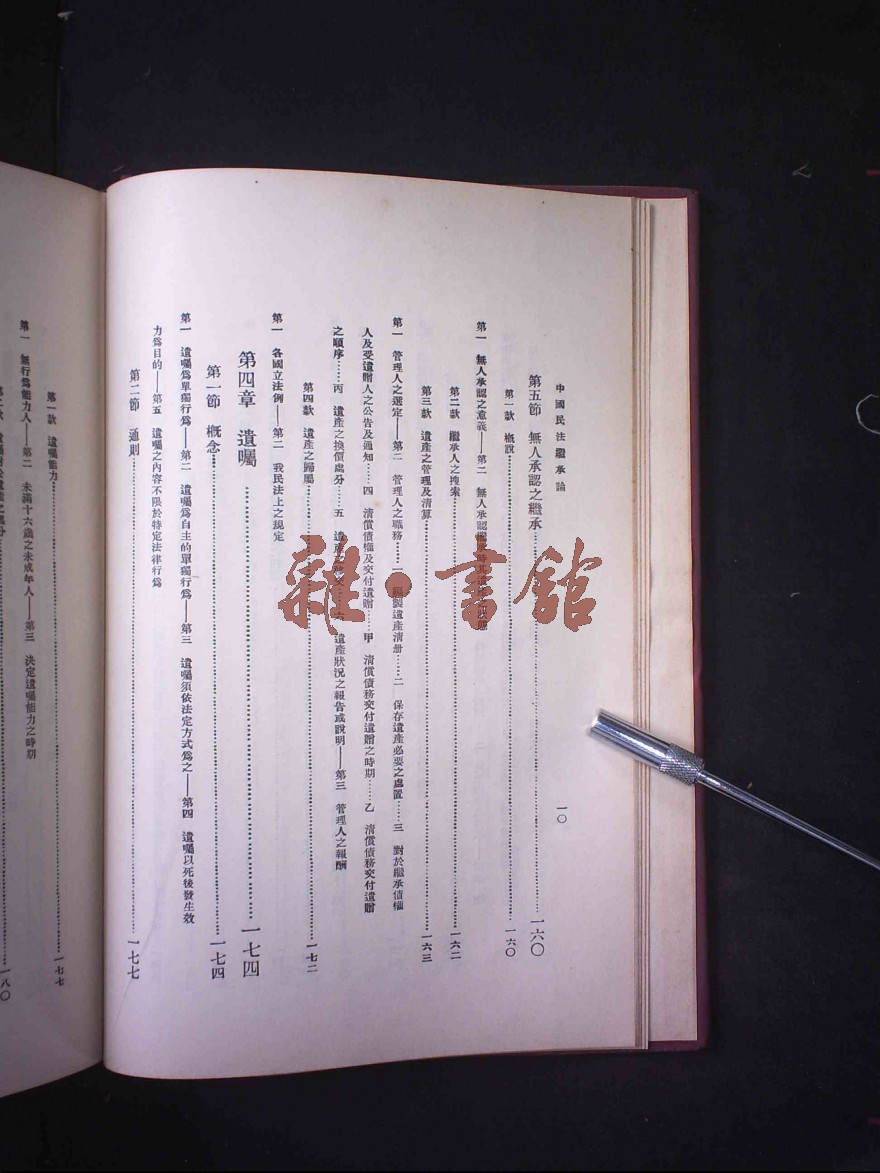 中國民法繼承論
一〇
第五節　無人承認之繼承……一六〇
第一款　槪說……一六〇
第一　無人承認之意義——第二　無人承認繼承時其遺產之狀態
第二款　繼承人之搜索……一六二
第三款　遺產之管理及清算……一六三
第一　管理人之選定——第二　管理人之職務……一　編製遺產清册……二　保存遺產必要之處置……三　對於繼承債權
人及受遺贈人之公告及通知……四　清償債權及交付遺贈……甲　清償債務交付遺贈之時期……乙　清償債務交付遺贈
之順序……丙　遺產之換價處分……五　遺產之移交……六　遺產狀況之報告或說明——第三　管理人之報酬
第四款　遺產之歸屬……一七二
第一　各國立法例——第二　我民法上之規定
第四章　遺囑……一七四
第一節　概念……一七四
第一　遺囑爲單獨行爲——第二　遺囑爲自主的單獨行爲——第三　遺囑須依法定方式爲之——第四　遺囑以死後發生效
力爲目的——第五　遺囑之內容不限於特定法律行爲
第二節　通則……一七七
第一款　遺囑能力……一七七
第一　無行爲能力人——第二　未滿十六歲之未成年人——第三　決定遺囑能力之時期
一八〇
雜·書館